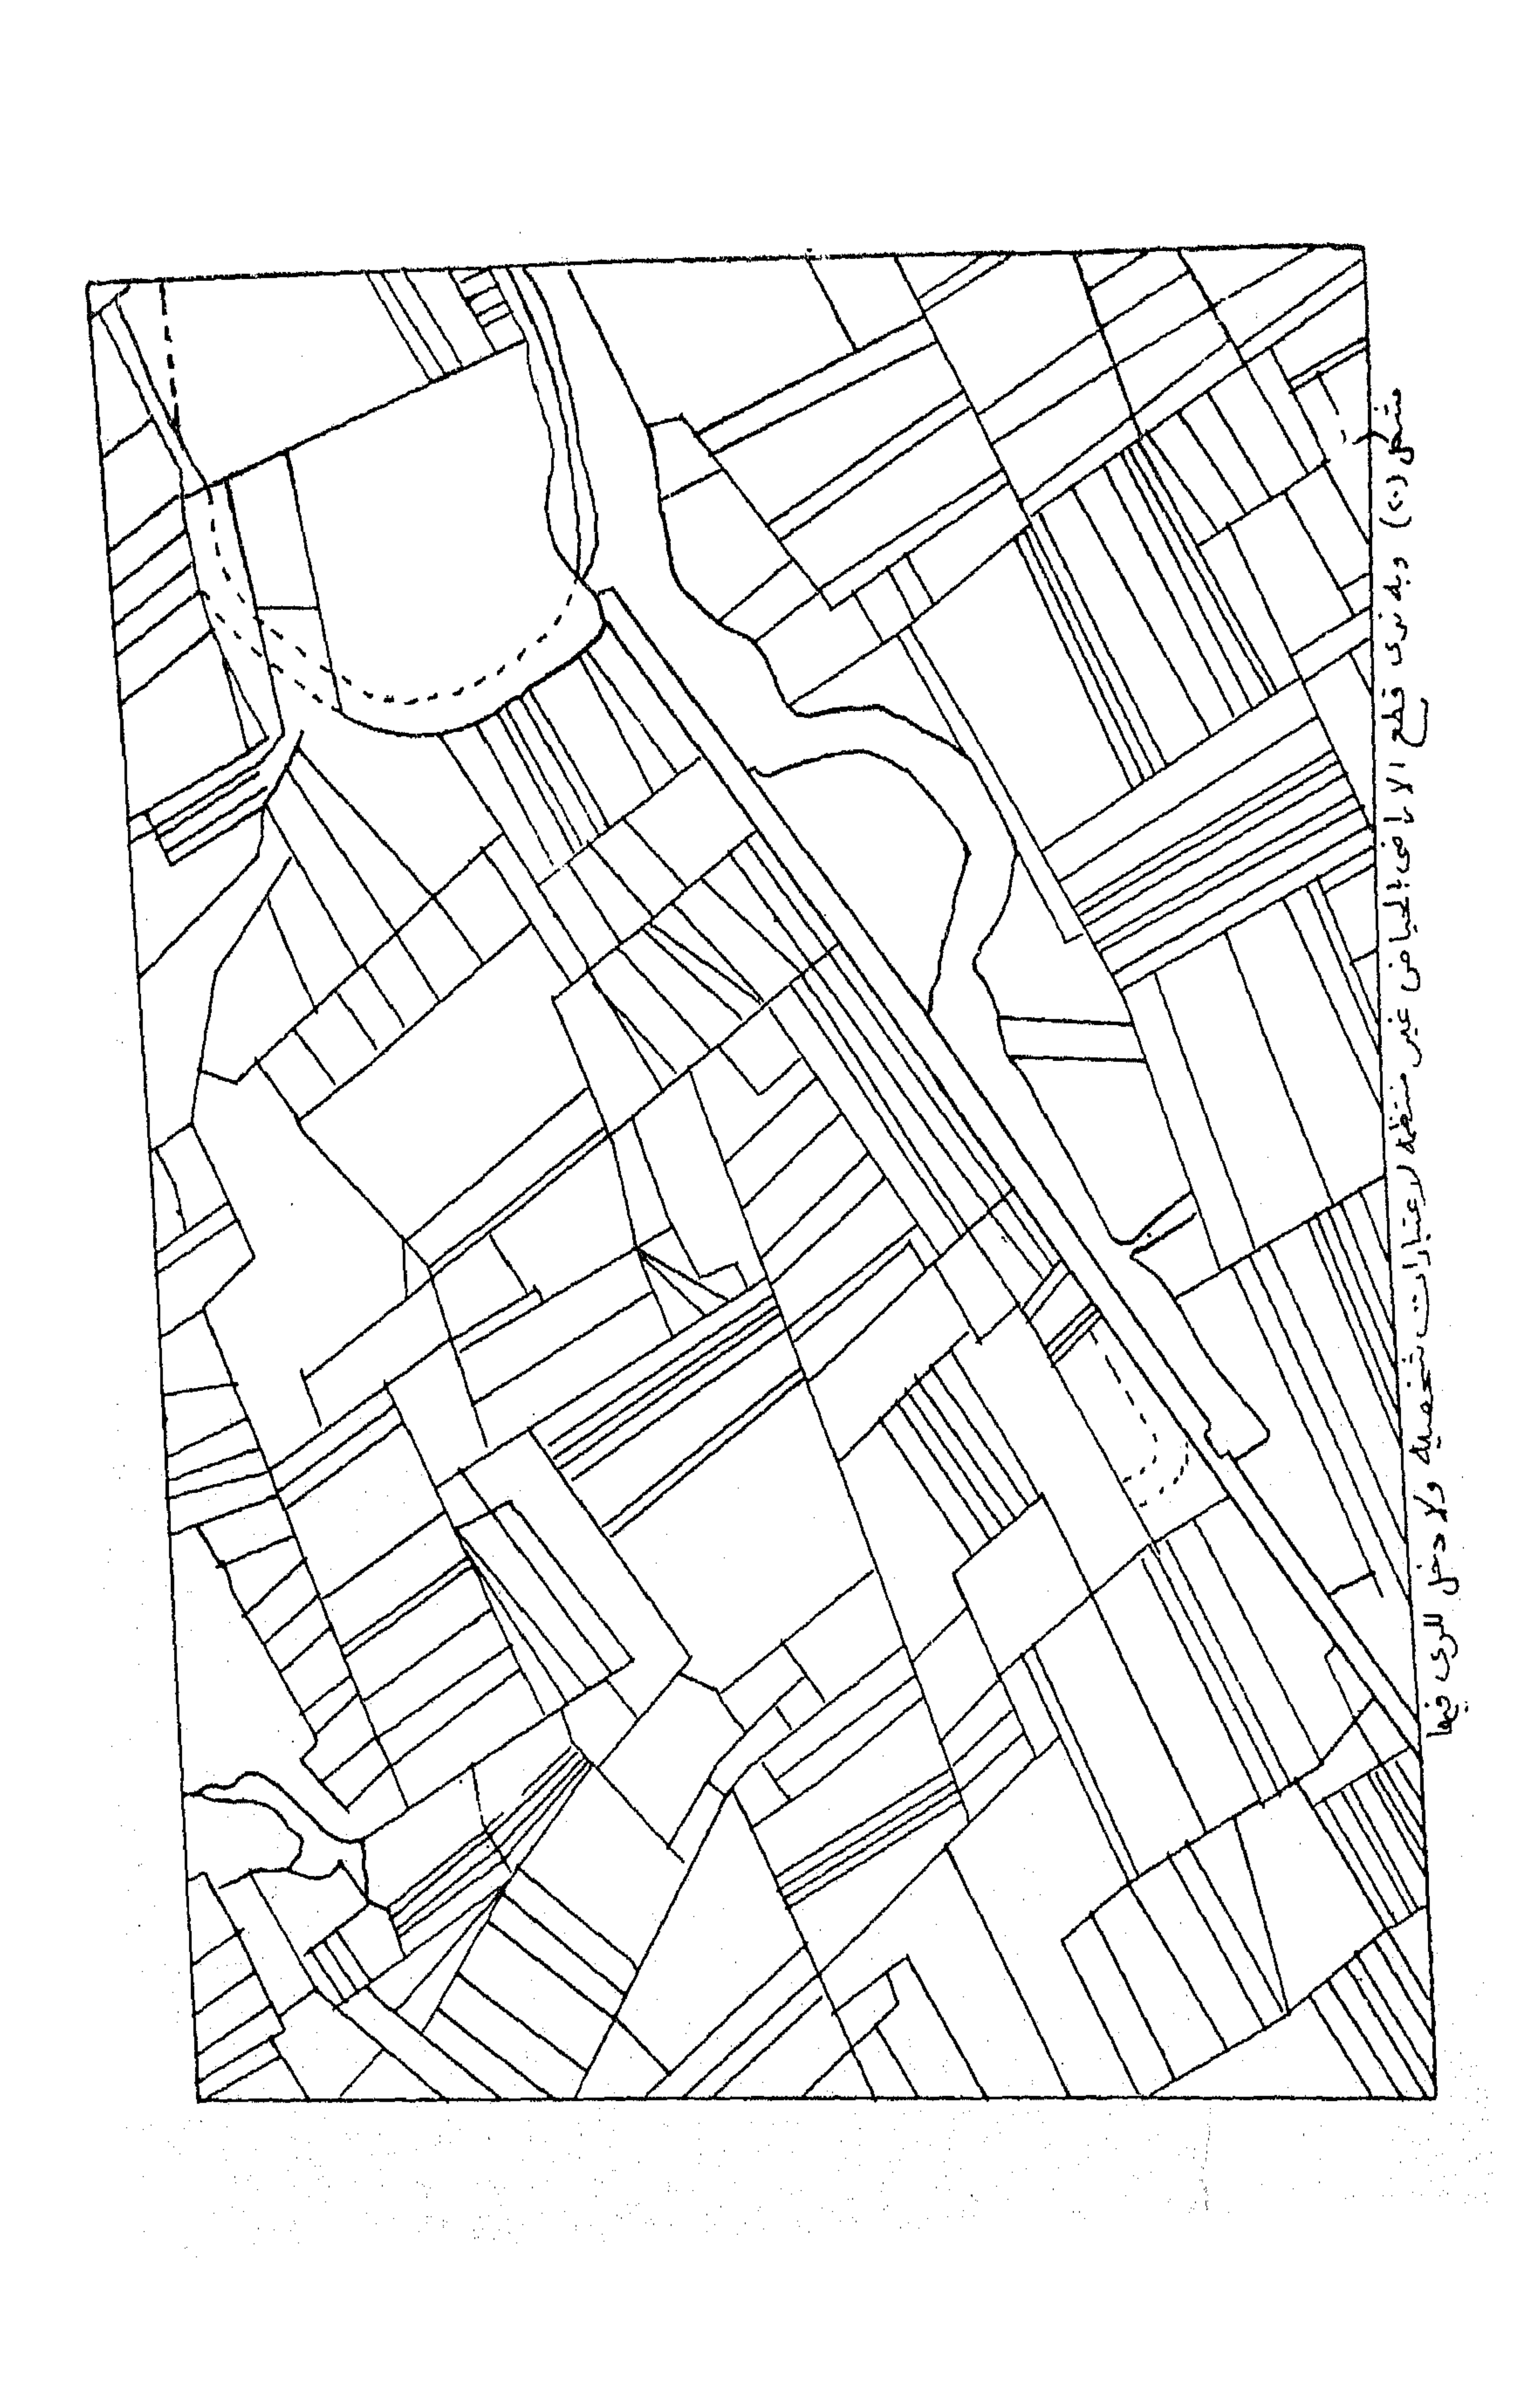 شكل (٢) وبه نرى قطع الاراضى الحياض غير منتظمه لاعتبارات شخصيه ولا دخل للرى فيها